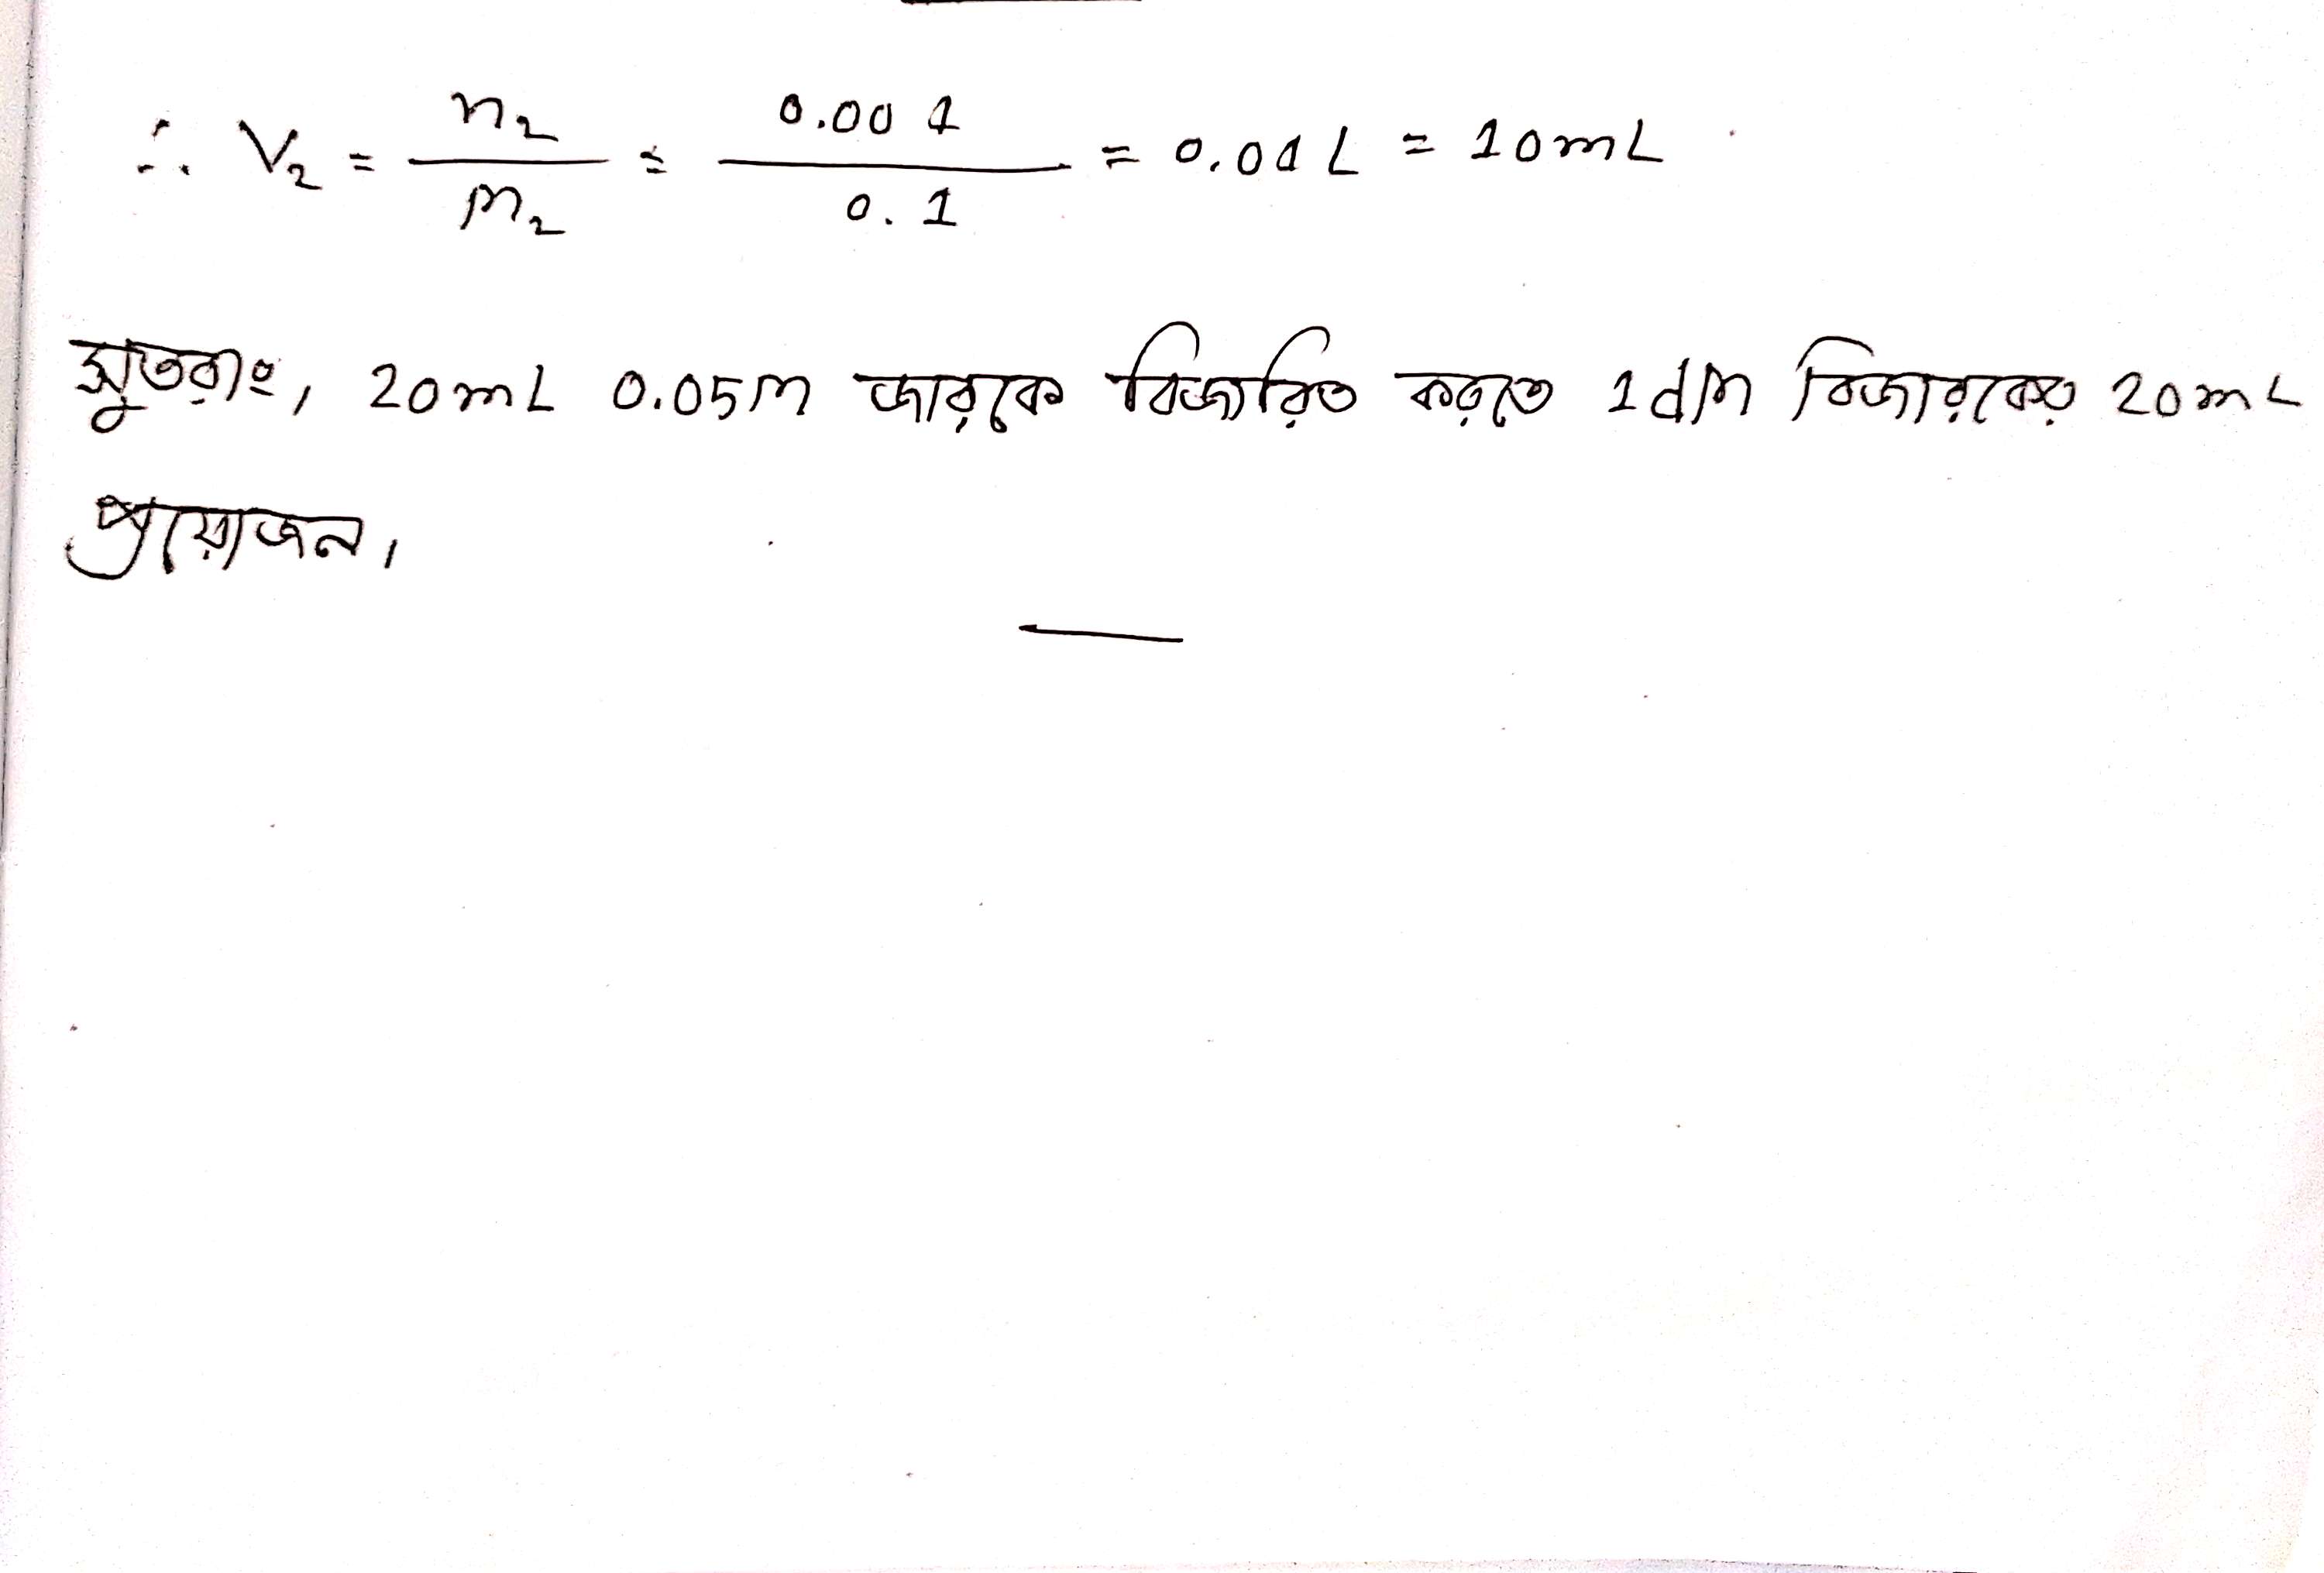 ∴ V₂ = n₂/M₂ = 0.001/0.1 = 0.01 L = 10mL
সুতরাং, 20mL 0.05M জারকে বিজারিত করতে 1dM বিজারকের 20mL
প্রয়োজন।